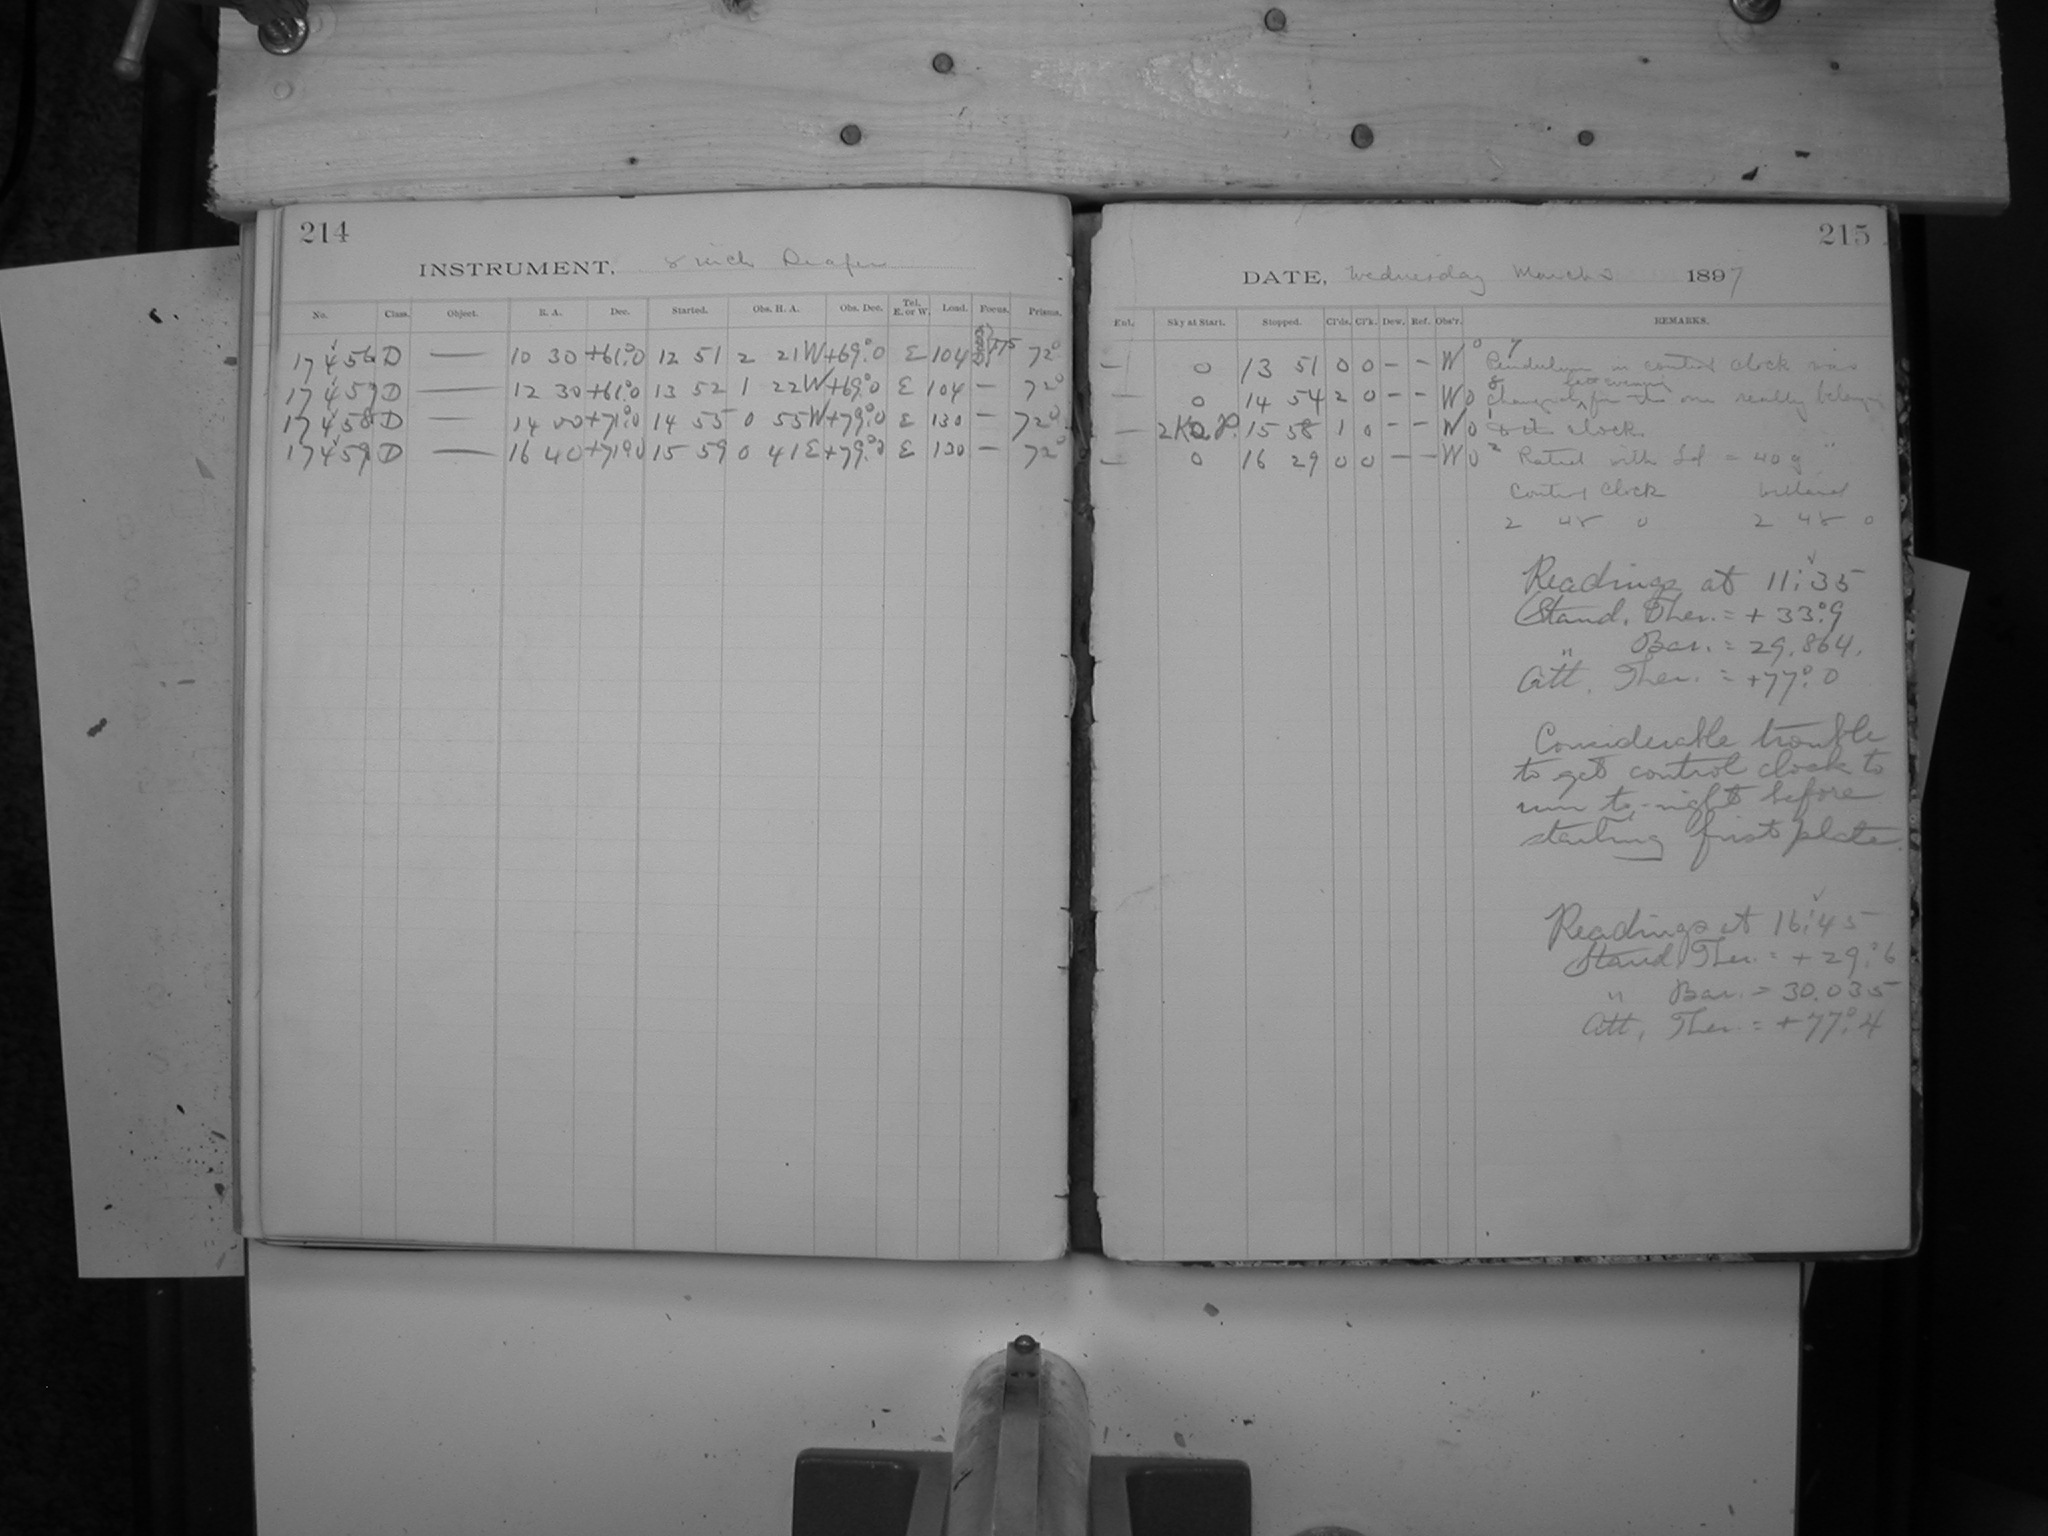 214
INSTRUMENT, 8 inch Draper
No. Class. Object. R. A. Dec. Started. Obs. H. A. Obs. Dec. Tel. E. or W. Load. Focus. Prisms.
17456 D — 10 30 +61°.0 12 51 2 21 W +69°.0 E 104 72°
17457 D — 12 30 +61°.0 13 52 1 22 W +69°.0 E 104 – 72°
17458 D — 14 00 +71°.0 14 55 0 55 W +79°.0 E 130 – 72°
17459 D — 16 40 +71°.0 15 59 0 41 E +79°.0 E 130 – 72°
215
DATE, Wednesday March 1897
Ent. Sky at Start. Stopped. Cl'ds. Cl'k. Dew. Ref. Obs'r. REMARKS.
— 0 13 51 0 0 – – W Pendulum on control clock was
— 0 14 54 2 0 – – W changed last evening for the one really belonging
— 15 58 1 0 – – W to the clock
— 0 16 29 0 0 – – W Rated with = 40 g
Control Clock Willard
2 48 0 2 48 0
Readings at 11:35
Stand. Ther. = + 33°.9
" Bar. = 29.864.
Att. Ther. = +77°.0
Considerable trouble
to get control clock to
run to-night before
starting first plate.
Readings at 16:45
Stand. Ther. = + 29°.6
" Bar. = 30.035
Att. Ther. = +77°.4